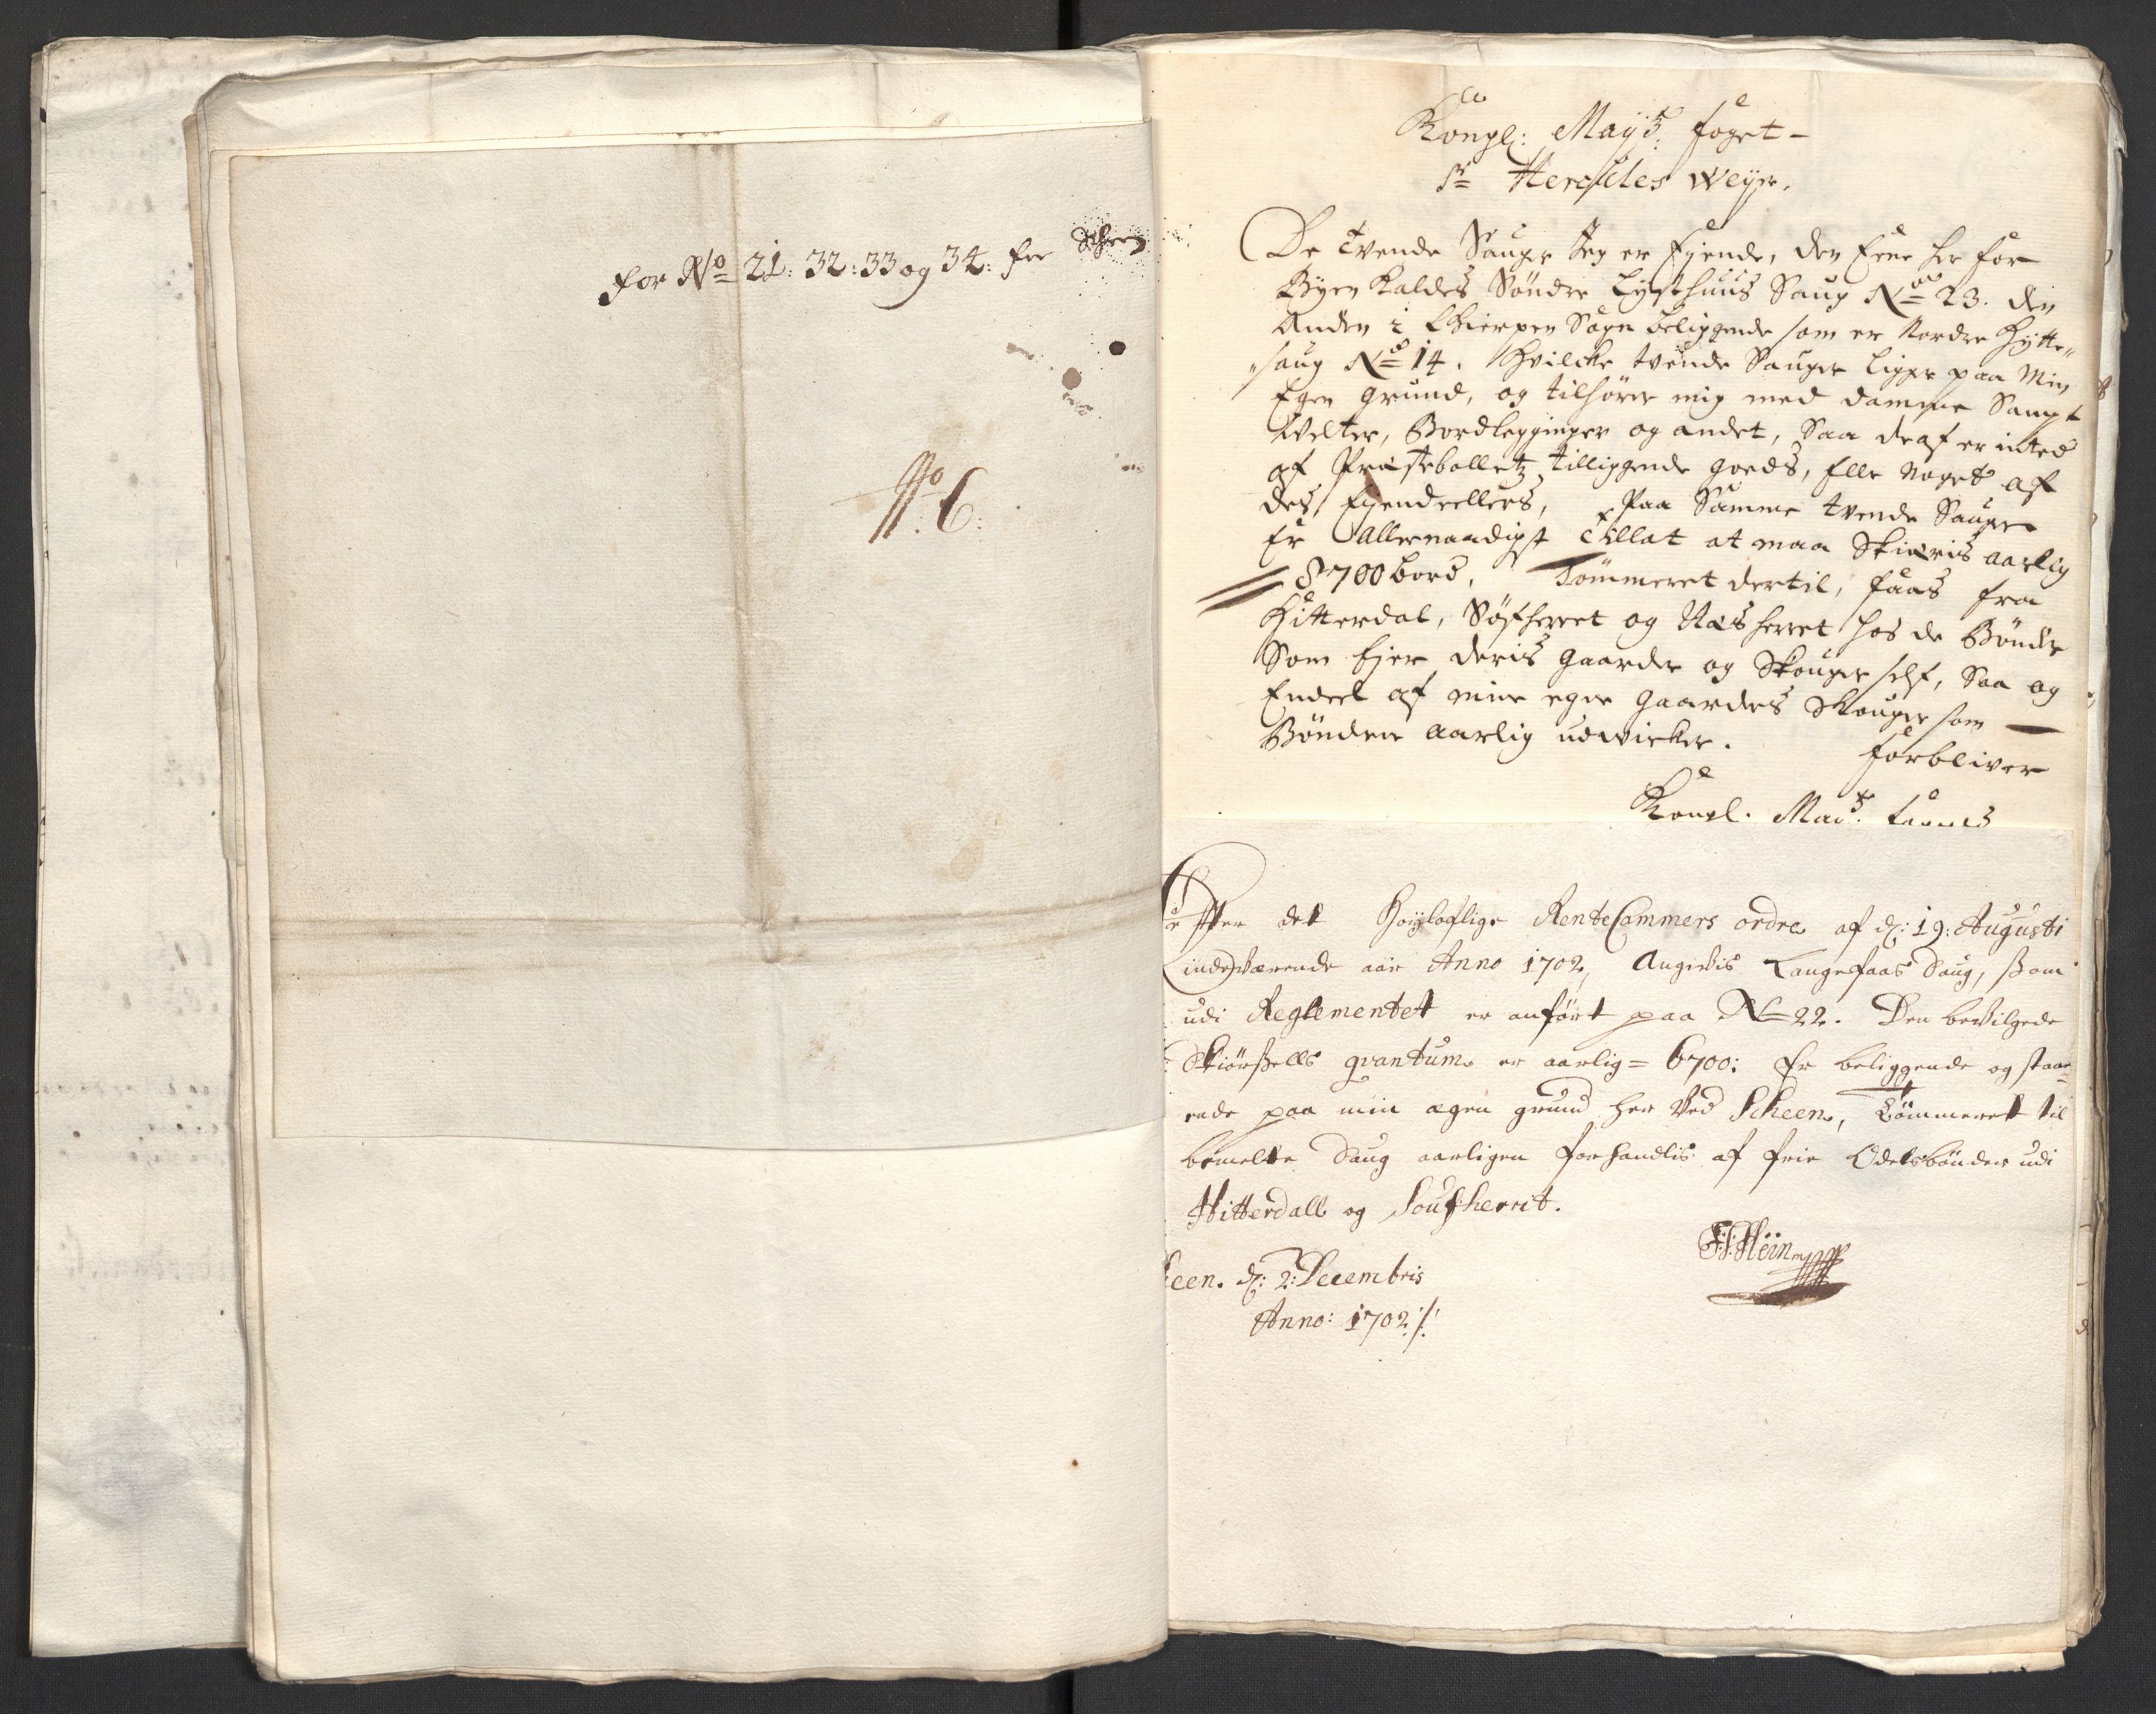 for No 21: 32: 33 og 34: for Scheen
No 6:
Kongl: Maÿts: foget
Sr Hercules Weÿer.
De tvende Sauger Jeg er Ejende, den Eene her for
Byen kaldes Söndre Lysthuus Saug No 23. den
Anden i Gierpen Sogn beliggende som er Nordre Hytte„
„saug No 14. Hvilcke tvende Sauger ligger paa Min
Egen grund, og tilhörer mig med damme Sampt
Velter, Bordlegginger og andet, Saa deraf er inted
af Præstebolletz tilliggende goeds, Elle noget af
des Ejendeellers, Paa Samme tvende Sauger
Er Allernaadigst tillat at maa Skiæris aarlig
8700 bord, Tömmeret dertil, faaes fra
Hitterdal, Söfherret og Næsherret hos de Bönder
Som Ejer deris gaarder og Skouger self, Saa og
Endeel af mine egne gaarders Skouger som
Bönderne aarlig udvirker. forbliver
Kongl. Mayts.
Efter det Høyloflige RenteCammers ordre af d: 19: Augusti
indeværende aar Anno 1702, Angivis Langefaas Saug, som
udi Reglementet er anført paa No 22. Den bevilgede
Skiörsells qvantum er aarlig = 6700: Er beliggende og staa=
ende paa min egen grund her ved Scheen, Tömmeret til
bemelte Saug aarligen forhandlis af frie Odelsbönder udi
Hitterdall og Soufherrit.
een. d: 2: Decembris
Anno: 1702 ./.